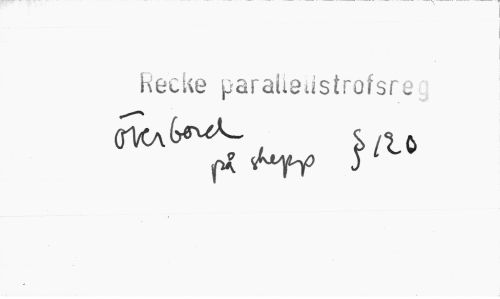 Recke parallellstrofsreg
överbord
på skepp § 120